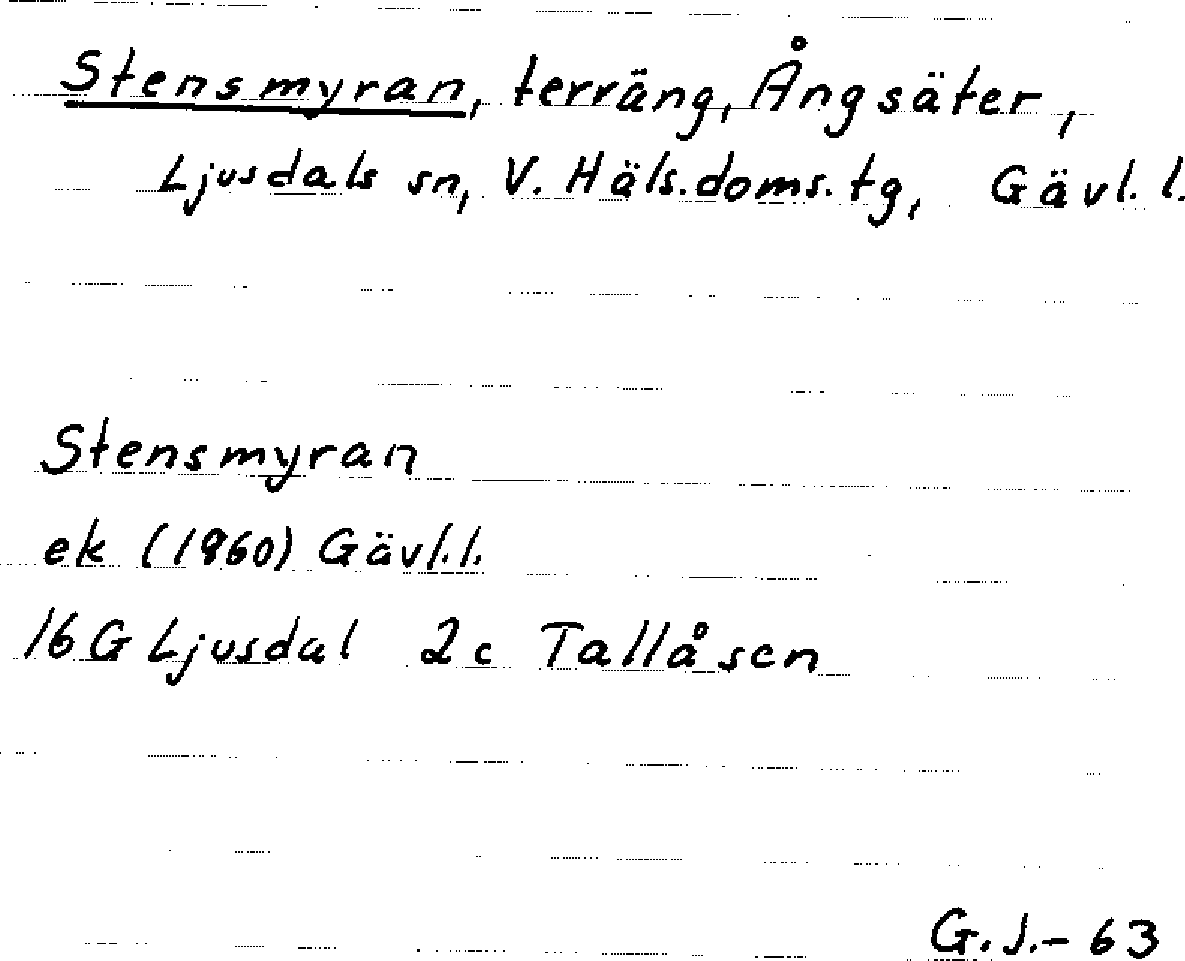 Stensmyran, terräng, Ångsäter,
Ljusdals sn, V. Häls.doms.tg, Gävl.l.
Stensmyran
ek (1960) Gävl.l.
16G Ljusdal 2c Tallåsen
G.J.-63